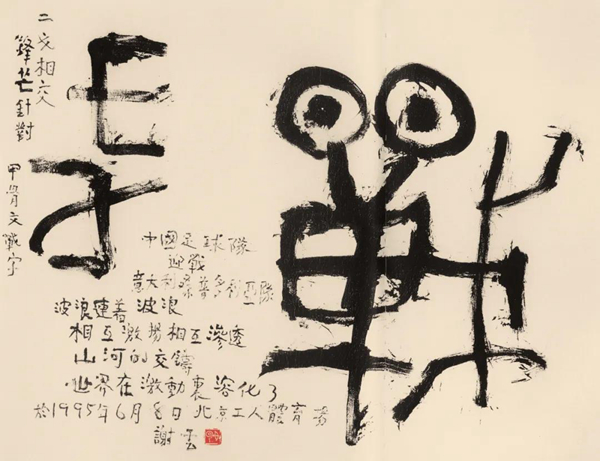 戰
二戈相交
鋒芒針對
甲骨文戰字
中國足球隊
迎戰
意大利桑普多利亞隊
波浪連着波浪
相互激揚相互滲透
山河的交鑄
世界在激動裏溶化了
於1995年6月 日北京工人體育
謝雲